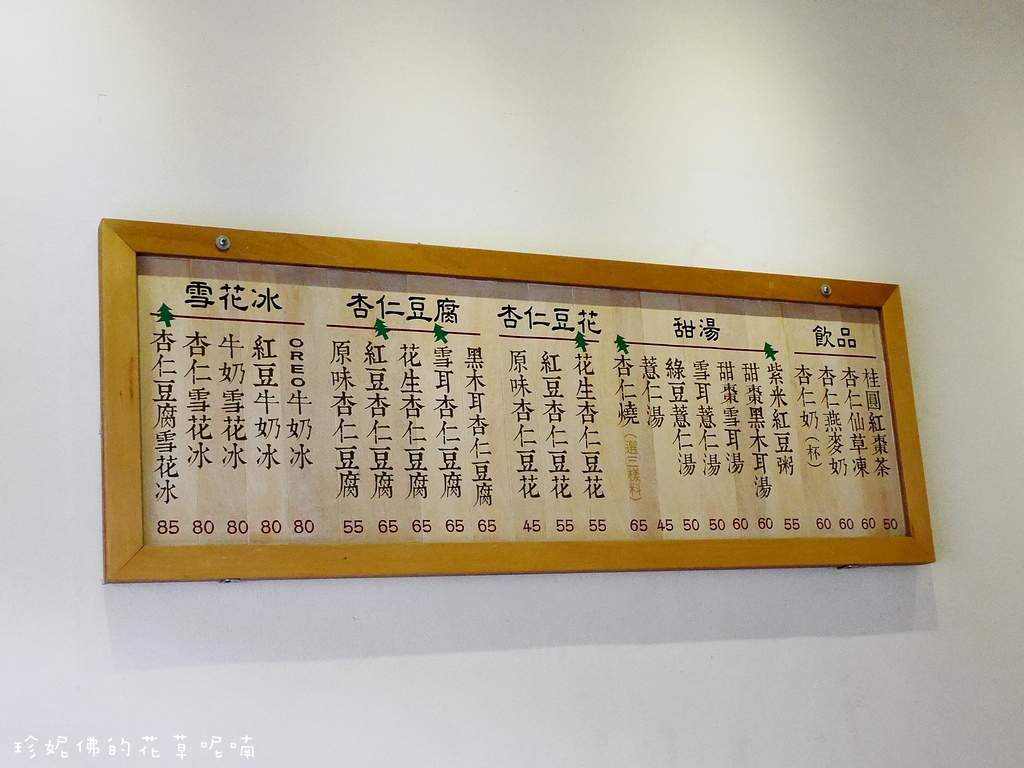 雪花冰
杏仁豆腐雪花冰 85
杏仁雪花冰 80
牛奶雪花冰 80
紅豆牛奶冰 80
OREO牛奶冰 80
杏仁豆腐
原味杏仁豆腐 55
紅豆杏仁豆腐 65
花生杏仁豆腐 65
雪耳杏仁豆腐 65
黑木耳杏仁豆腐 65
杏仁豆花
原味杏仁豆花 45
紅豆杏仁豆花 55
花生杏仁豆花 55
甜湯
杏仁燒(選三樣料) 65
薏仁湯 45
綠豆薏仁湯 50
雪耳薏仁湯 50
甜棗雪耳湯 60
甜棗黑木耳湯 60
紫米紅豆粥 55
飲品
杏仁奶(杯) 60
杏仁燕麥奶 60
杏仁仙草凍 60
桂圓紅棗茶 50
珍妮佛的花草呢喃